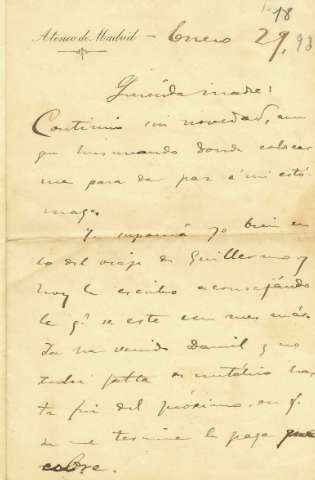 18
Ateneo de Madrid - Enero 29, 93
Querida madre:
Continuo sin novedad, aun
que buscando donde colocar
me para dar paz á mi estó-
mago.
Ya suponía yo bien en
lo del viaje de Guillermo y
hoy le escribo aconsejándo
le qe se este ahi un mes más.
Ya ha venido Daniel y no
habrá falta de metálico has
ta fin del próximo, en qe
se me termine la paga
cobre.